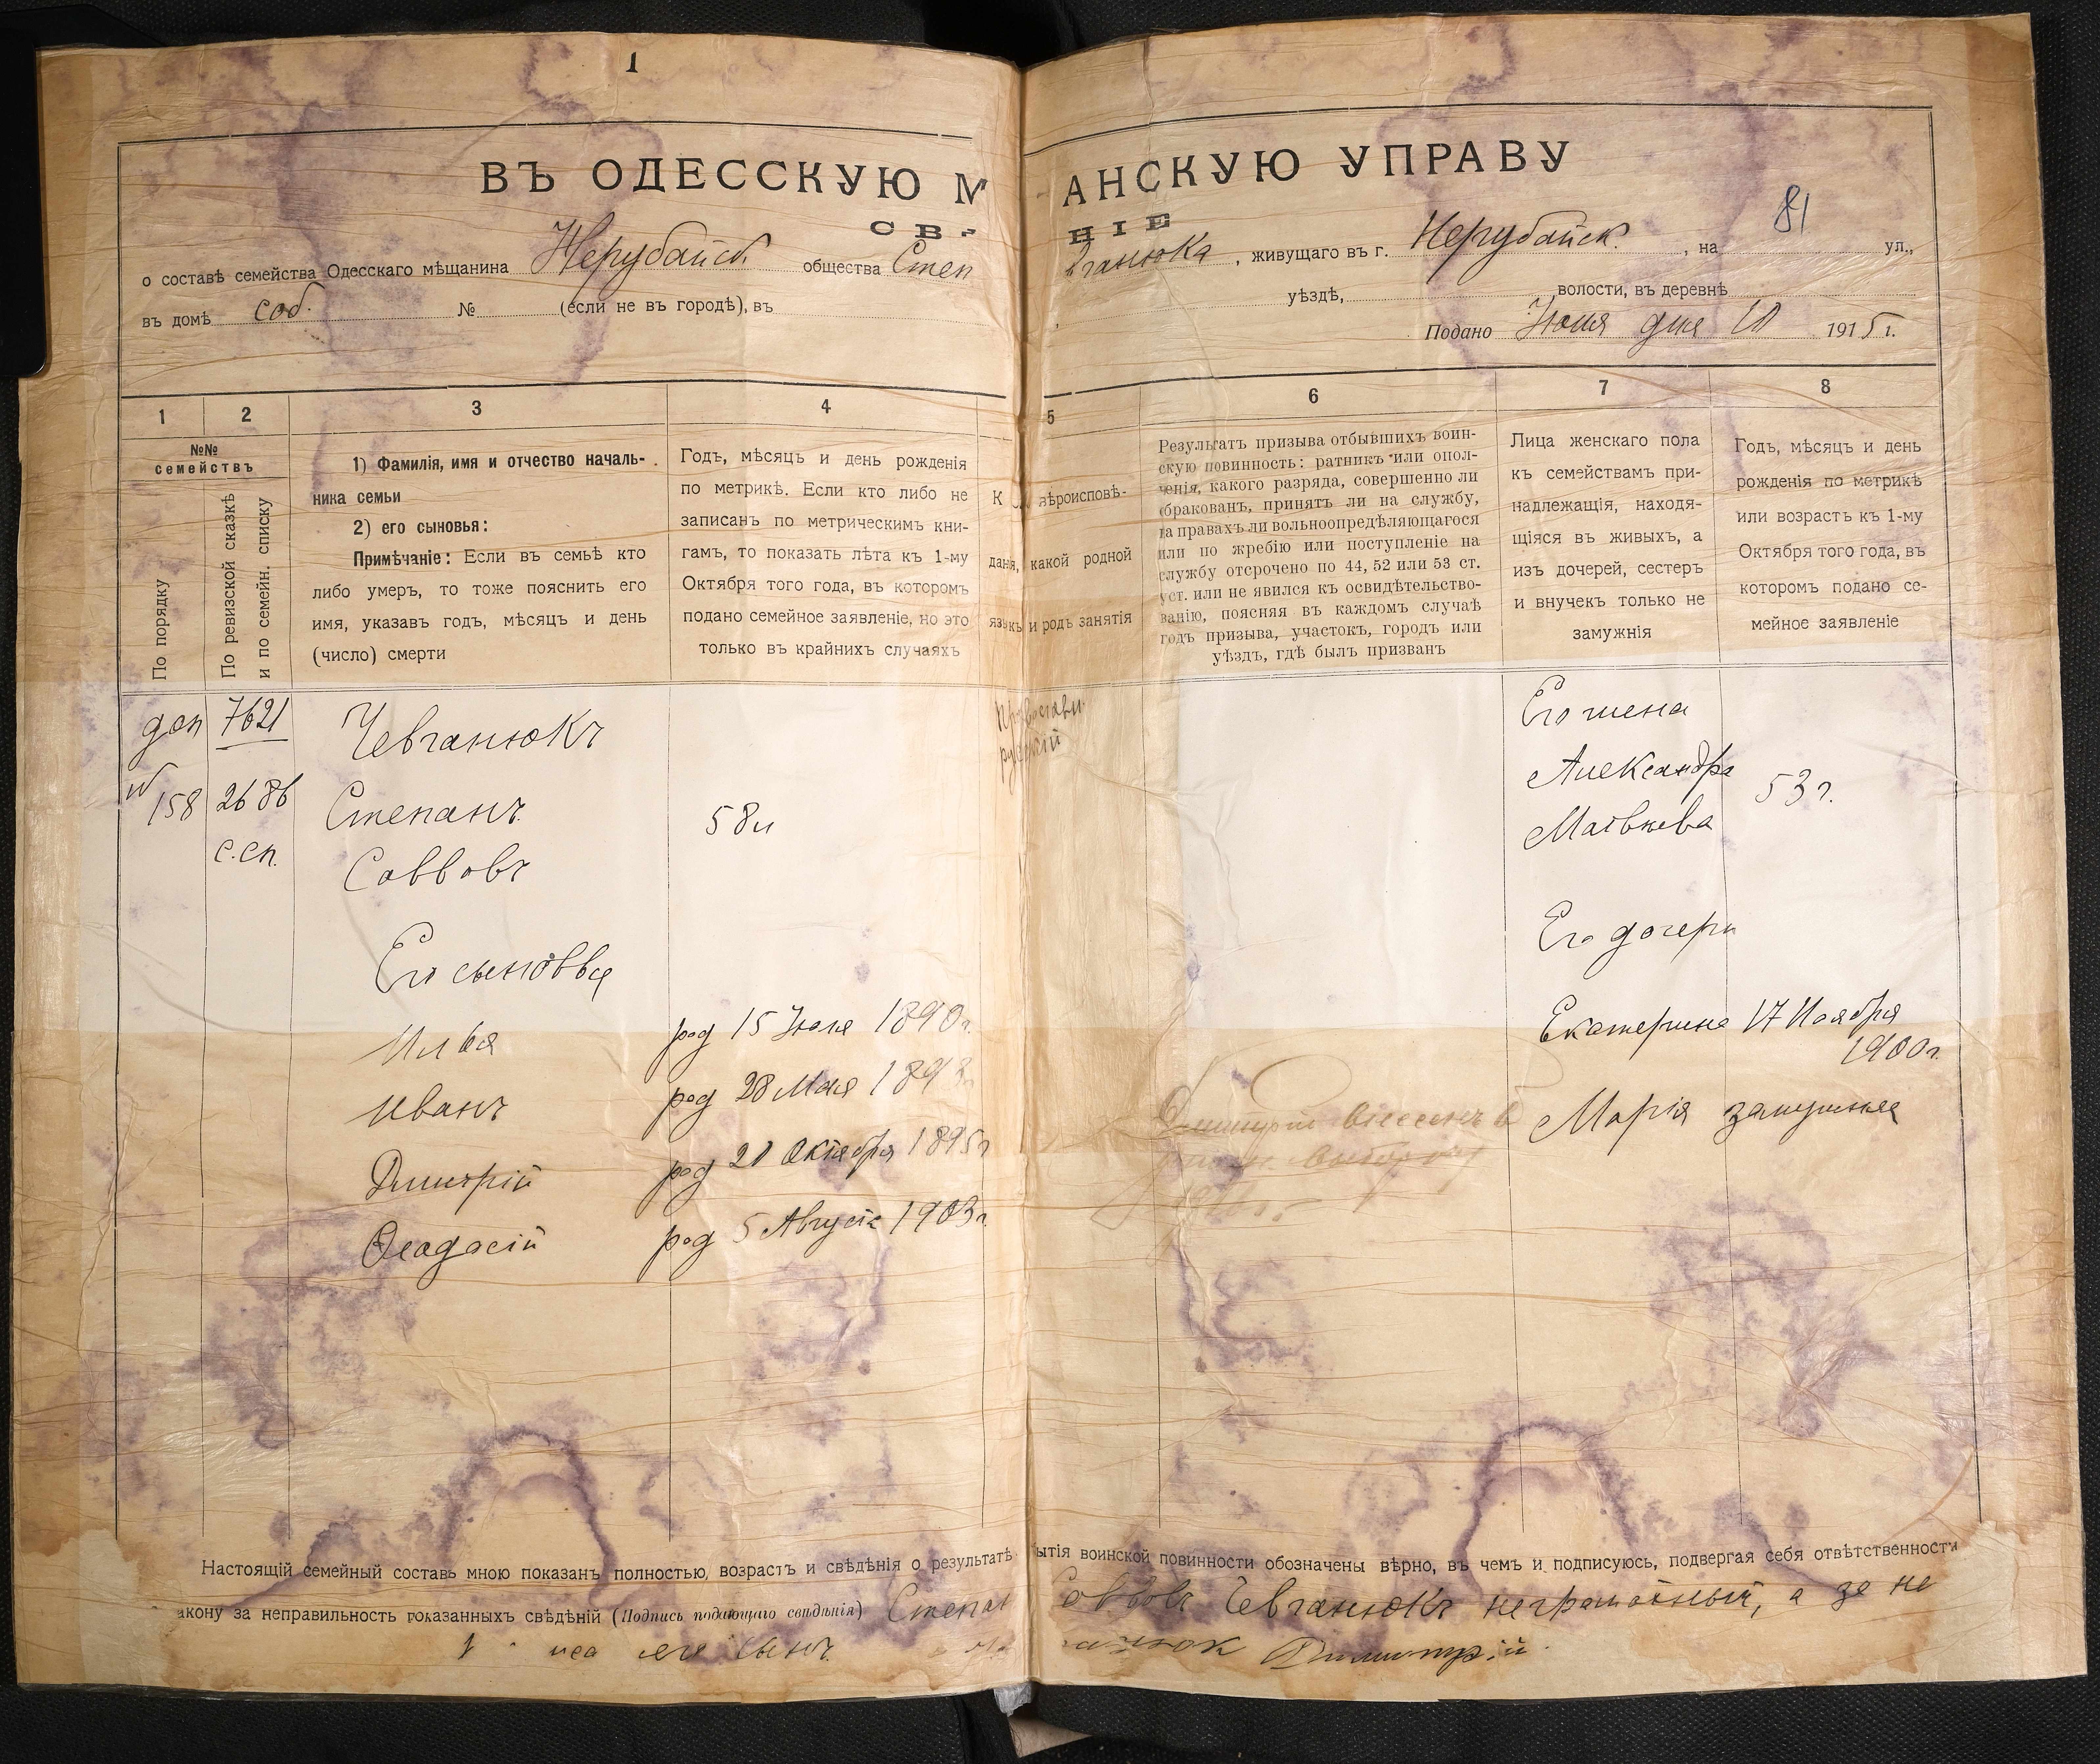 1
ВЪ ОДЕССКУЮ М АНСКУЮ УПРАВУ
СВ НІЕ
81
о составѣ семейства Одесскаго мѣщанина Нерубайск. общества Степ ганюка, живущаго въ г. Нерубайск., на ул.,
въ домѣ соб. № (если не въ городѣ), въ уѣздѣ, волости, въ деревнѣ
Подано Іюля дня 10 1915 г.
1 2 3 4 5 6 7 8
№№
семействъ
По порядку
По ревизской сказкѣ
и по семейн. списку
1) Фамилія, имя и отчество началь-
ника семьи
2) его сыновья:
Примѣчаніе: Если въ семьѣ кто
либо умеръ, то тоже пояснить его
имя, указавъ годъ, мѣсяцъ и день
(число) смерти
Годъ, мѣсяцъ и день рожденія
по метрикѣ. Если кто либо не
записанъ по метрическимъ кни-
гамъ, то показать лѣта къ 1-му
Октября того года, въ которомъ
подано семейное заявленіе, но это
только въ крайнихъ случаяхъ
К вѣроисповѣ-
данія, какой родной
языкъ и родъ занятія
Результатъ призыва отбывшихъ воин-
скую повинность: ратникъ или опол-
ченія, какого разряда, совершенно ли
бракованъ, принятъ ли на службу,
на правахъ ли вольноопредѣляющагося
или по жребію или поступленіе на
службу отсрочено по 44, 52 или 53 ст.
уст. или не явился къ освидѣтельство-
ванію, поясняя въ каждомъ случаѣ
годъ призыва, участокъ, городъ или
уѣздъ, гдѣ былъ призванъ
Лица женскаго пола
къ семействамъ при-
надлежащія, находя-
щіяся въ живыхъ, а
изъ дочерей, сестеръ
и внучекъ только не
замужнія
Годъ, мѣсяцъ и день
рожденія по метрикѣ
или возрастъ къ 1-му
Октября того года, въ
которомъ подано се-
мейное заявленіе
доп 7621 Чевганюкъ
158 2686 Степанъ 58 л
с.сп. Саввовъ
Православн.
русскій
Его жена
Александра 53 г.
Матвѣева
Его сыновья
Его дочери
Илья род 15 Іюля 1890 г.
Екатерина 17 Ноября
1900 г.
Иванъ род 28 Мая 1893 г
Марія замужняя
Дмитрій род 21 Октября 1895 г
Ѳеодосій род 5 Августа 1903 г.
Дмитрій
Настоящій семейный составъ мною показанъ полностью, возрастъ и свѣдѣнія о результатѣ ытія воинской повинности обозначены вѣрно, въ чемъ и подписуюсь, подвергая себя отвѣтственности
акону за неправильность показанныхъ свѣдѣній (Подпись подающаго свѣдѣнія) Степан Саввовъ Чевганюкъ неграмотный, а за не
его сынъ ганюк Димитрій